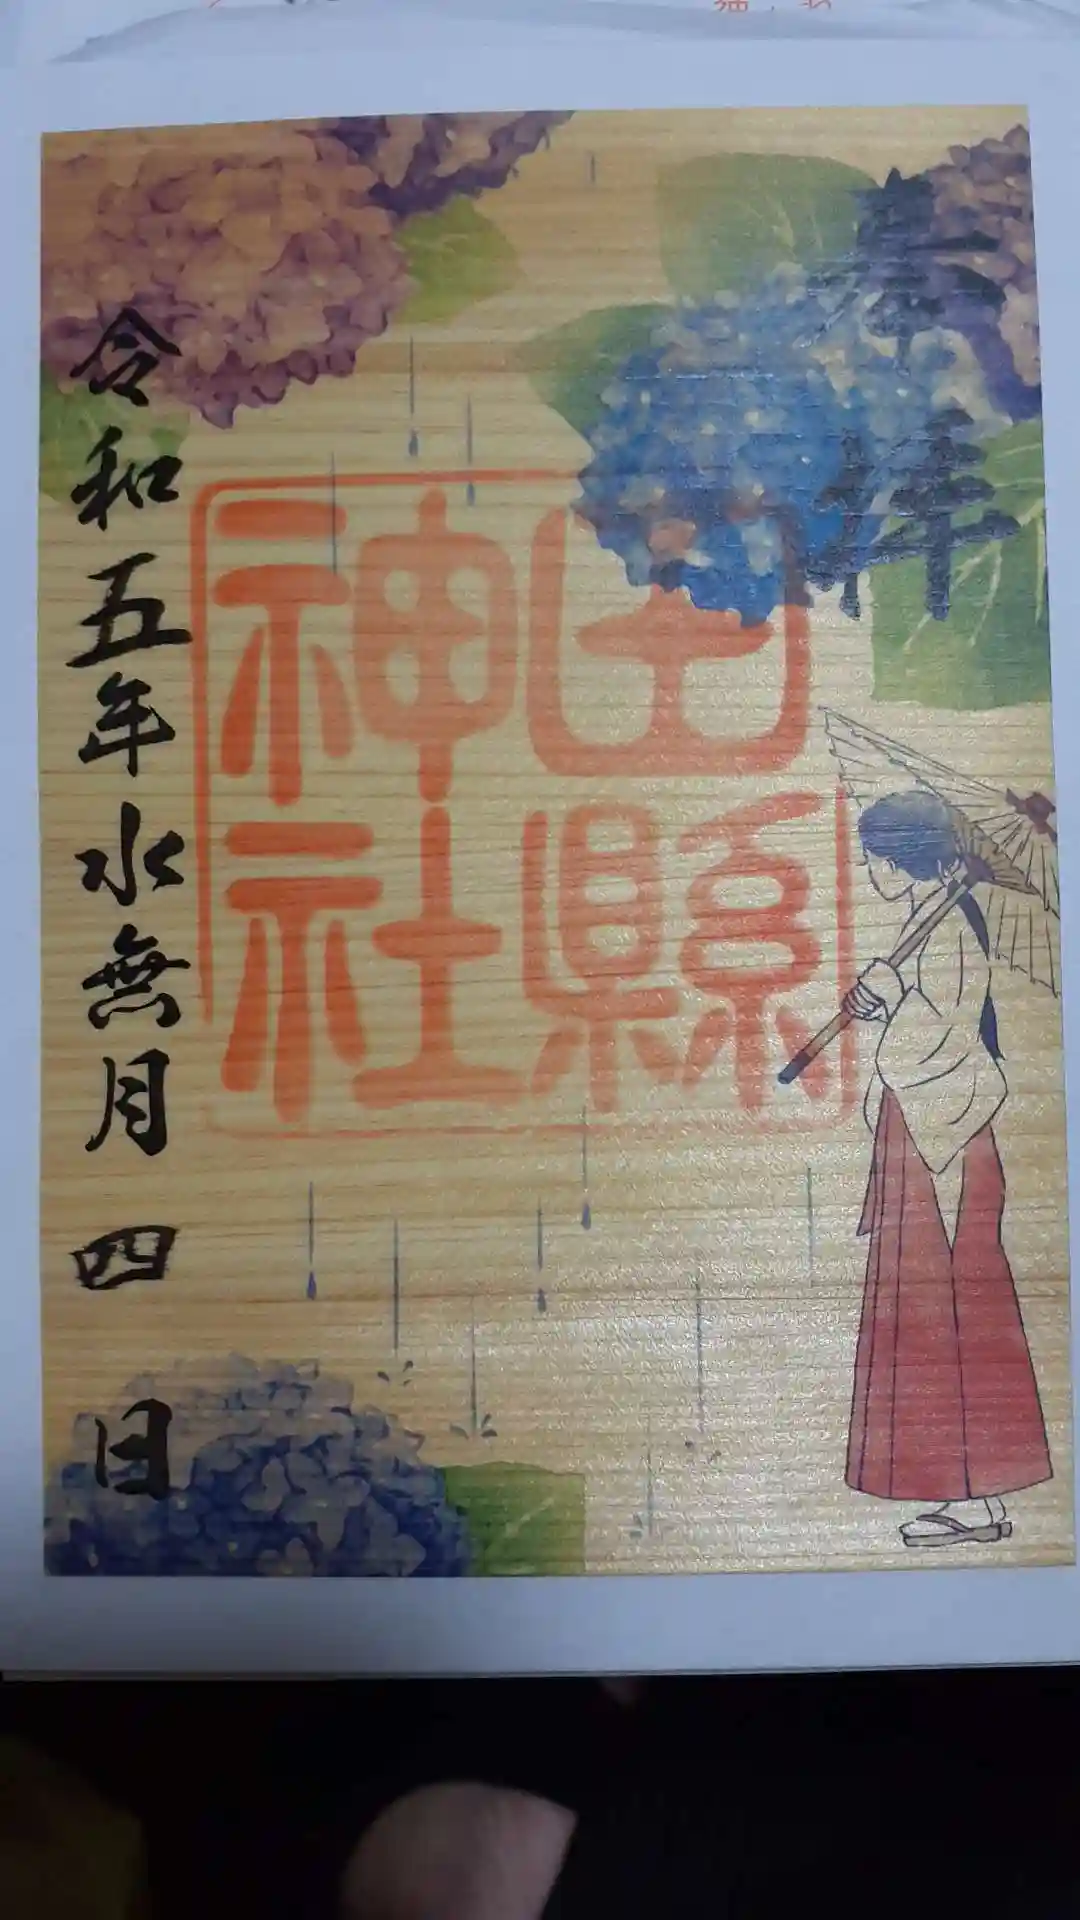 奉拝
田縣
神社
令和五年水無月四日